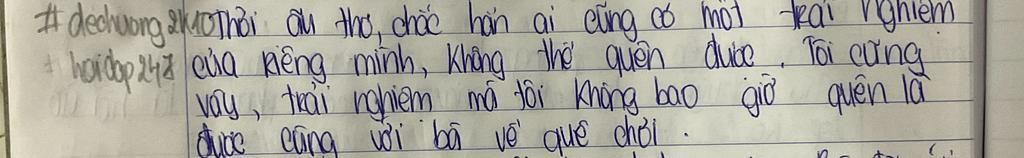 #dechuong2k10 Thời ấu thơ, chắc hẳn ai cũng có một trải nghiệm
hoidap247 của riêng mình, không thể quên được. Tôi cũng
vậy, trải nghiệm mà tôi không bao giờ quên là
được cùng với bà về quê chơi.